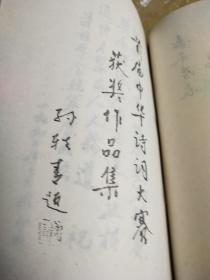 首届中华诗词大赛
获奖作品集
孙轶青题